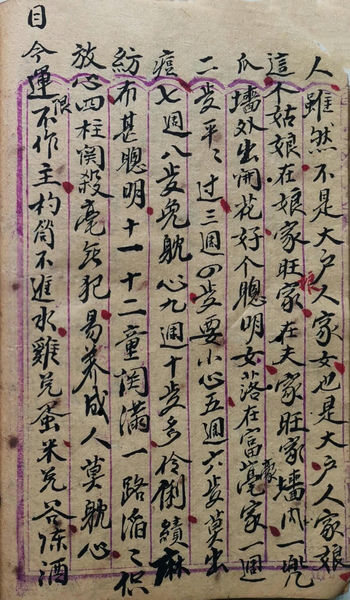 人雖然不是大户人家女也是大户人家娘
這个姑娘在娘家旺家在夫家旺家墻内一兜
瓜墻外出開花好个聰明女落在富豪家一週
二步平々过三週四步要小心五週六步莫出
痘七週八步免躭心九週十步多伶俐績麻
紡布甚聰明十一十二童関滿一路滔々
放心四柱関殺毫无犯易養成人莫躭心
目今運限不作主杓筒不進水雞兑蛋米兑谷陈酒